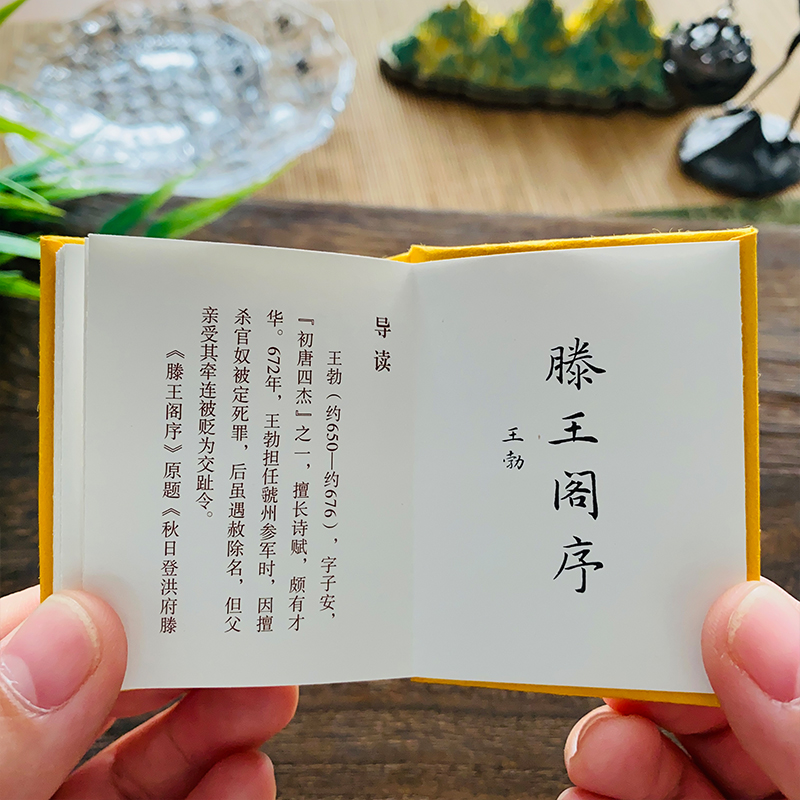 滕王阁序
王勃
导读
王勃（约650—约676），字子安，
『初唐四杰』之一，擅长诗赋，颇有才
华。672年，王勃担任虢州参军时，因擅
杀官奴被定死罪，后虽遇赦除名，但父
亲受其牵连被贬为交趾令。
《滕王阁序》原题《秋日登洪府滕